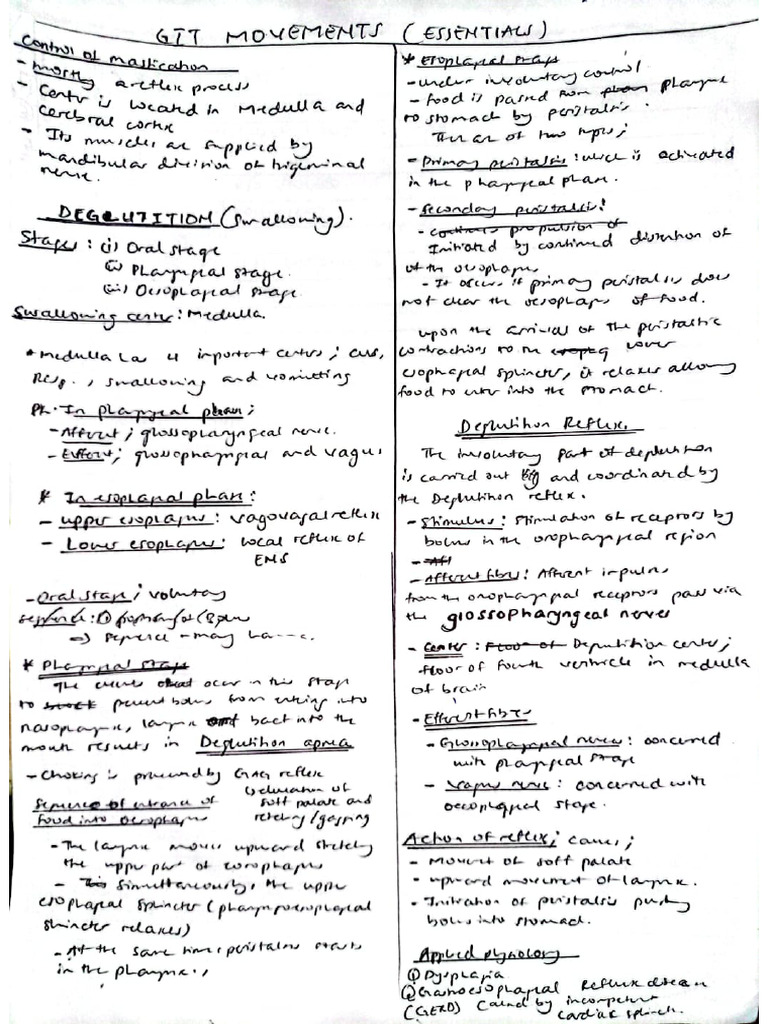 GIT MOVEMENTS (ESSENTIALS)
Control of mastication
- mostly a reflex process
- Center is located in Medulla and
cerebral cortex
- Its muscles are supplied by
mandibular division of trigeminal
nerve.
DEGLUTITION (Swallowing).
Stages: (i) Oral stage
(ii) Pharyngeal stage.
(iii) Oesophageal stage
Swallowing center: Medulla.
* Medulla has 4 important centers; CVS,
Resp., swallowing and vomitting
Ph. In pharyngeal phase;
- Afferent; glossopharyngeal nerve.
- Efferent; glossopharyngeal and vagus
* In esophageal phase:
- upper esophagus: vagovagal reflex
- Lower esophagus: local reflex of
ENS
- Oral stage; voluntary
Sequence: ①
=> sequence - may
* Pharyngeal stage
The events that occur in this stage
to prevent bolus from entering into
nasopharynx, larynx and back into the
mouth results in Deglutition apnea
- Choking is prevented by Gag reflex
elevation of
soft palate and
retching/gasping
Sequence of entrance of
food into oesophagus
- The larynx moves upward stretching
the upper part of esophagus
- Simultaneously, the upper
esophageal sphincter (pharyngoesophageal
sphincter relaxes)
- At the same time peristalsis starts
in the pharynx.
* Esophageal stage
- under involuntary control
- food is passed from pharynx
to stomach by peristalsis.
The are of two types;
- Primary peristalsis: which is activated
in the pharyngeal phase.
- Secondary peristalsis:
- continues propulsion of
Initiated by continued distention of
of the oesophagus
- It occurs if primary peristalsis does
not clear the oesophagus of food.
upon the arrival of the peristaltic
contractions to the lower
esophageal sphincter, it relaxes allowing
food to enter into the stomach.
Deglutition Reflex.
The involuntary part of deglutition
is carried out by and coordinated by
the Deglutition reflex.
- Stimulus: Stimulation of receptors by
bolus in the oropharyngeal region
- Aff
- Afferent fibres: Afferent impulses
from the oropharyngeal receptors pass via
the glossopharyngeal nerves
- Center: Floor of Deglutition center;
floor of fourth ventricle in medulla
of brain
- Efferent fibres
- Glossopharyngeal nerves: concerned
with pharyngeal stage
- Vagus nerve: concerned with
oesophageal stage.
Action of reflex; causes;
- Movement of soft palate
- upward movement of larynx.
- Initiation of peristalsis pushing
bolus into stomach.
Applied physiology
① Dysphagia
② Gastroesophageal Reflux disease
(GERD) Caused by incompetent
cardiac sphinct.